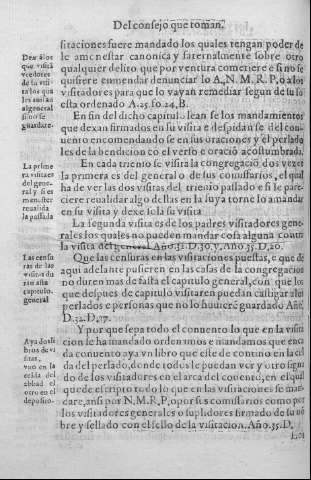 Del consejo que toman.
sitaciones fuere mandado los quales tengan poder de
le amonestar canonica y fraternalmente sobre otro
qualquier delito que por ventura cometiere e si no se
quisiere enmendar denunciar lo A.N.M.R.P. o a los
visitadores para que lo vayan remediar segun de suso
esta ordenado A.25.fo.24.B.
En fin del dicho capitulo lean se los mandamientos
que dexan firmados en su visita e despidan se del con-
uento encomendando se en sus oraciones y el perlado
les de la bendicion con el verso e oracion acostumbrada.
En cada trienio se visita la congregacion dos vezes
la primera es del general o de sus comissarios, el qual
ha de ver las dos visitas del trienio passado e si le pare-
ciere reualidar algo dellas en la suya torne lo a mandar
en su visita y dexe sela su visita
La segunda visita es de los padres visitadores gene-
rales los quales no pueden mandar cosa alguna contra
la visita del general Año.31.D.30.y. Año.35.D.20.
Que las censuras en las visitaciones puestas, e que de
aqui adelante pusieren en las casas de la congregacion
no duren mas de fasta el capitulo general, con que los
que despues de capitulo visitaren puedan castigar a los
perlados e personas que no lo huuieren guardado Año.
D.32.D.17.
Y por que sepa todo el conuento lo que en la visita
cion se ha mandado ordenamos e mandamos que en ca
da conuento aya vn libro que este de contino en la cel
da del perlado, donde todos le puedan ver y otro segun
do de los visitadores en el arca del conuento, en el qual
quede escripto todo lo que en las visitaciones se man-
dare, ansi por N.M.R.P. o por sus comissarios como por
los visitadores generales o suplidores firmado de su nõ
bre y sellado con el sello de la visitacion. Año.35.D.
Dexẽ alos
que visitã
vcedores
de la visi-
ta los que
les auisan
al general
si no se
guardare.
La prime
ra visita es
del gene-
ral y si es
menester
reualida
la passada
Las censu
ras de las
visitas du
ran asta
capitulo
general
Aya dos li
bros de vi
sitas,
vno en la
celda del
abbad el
otro en el
deposito.